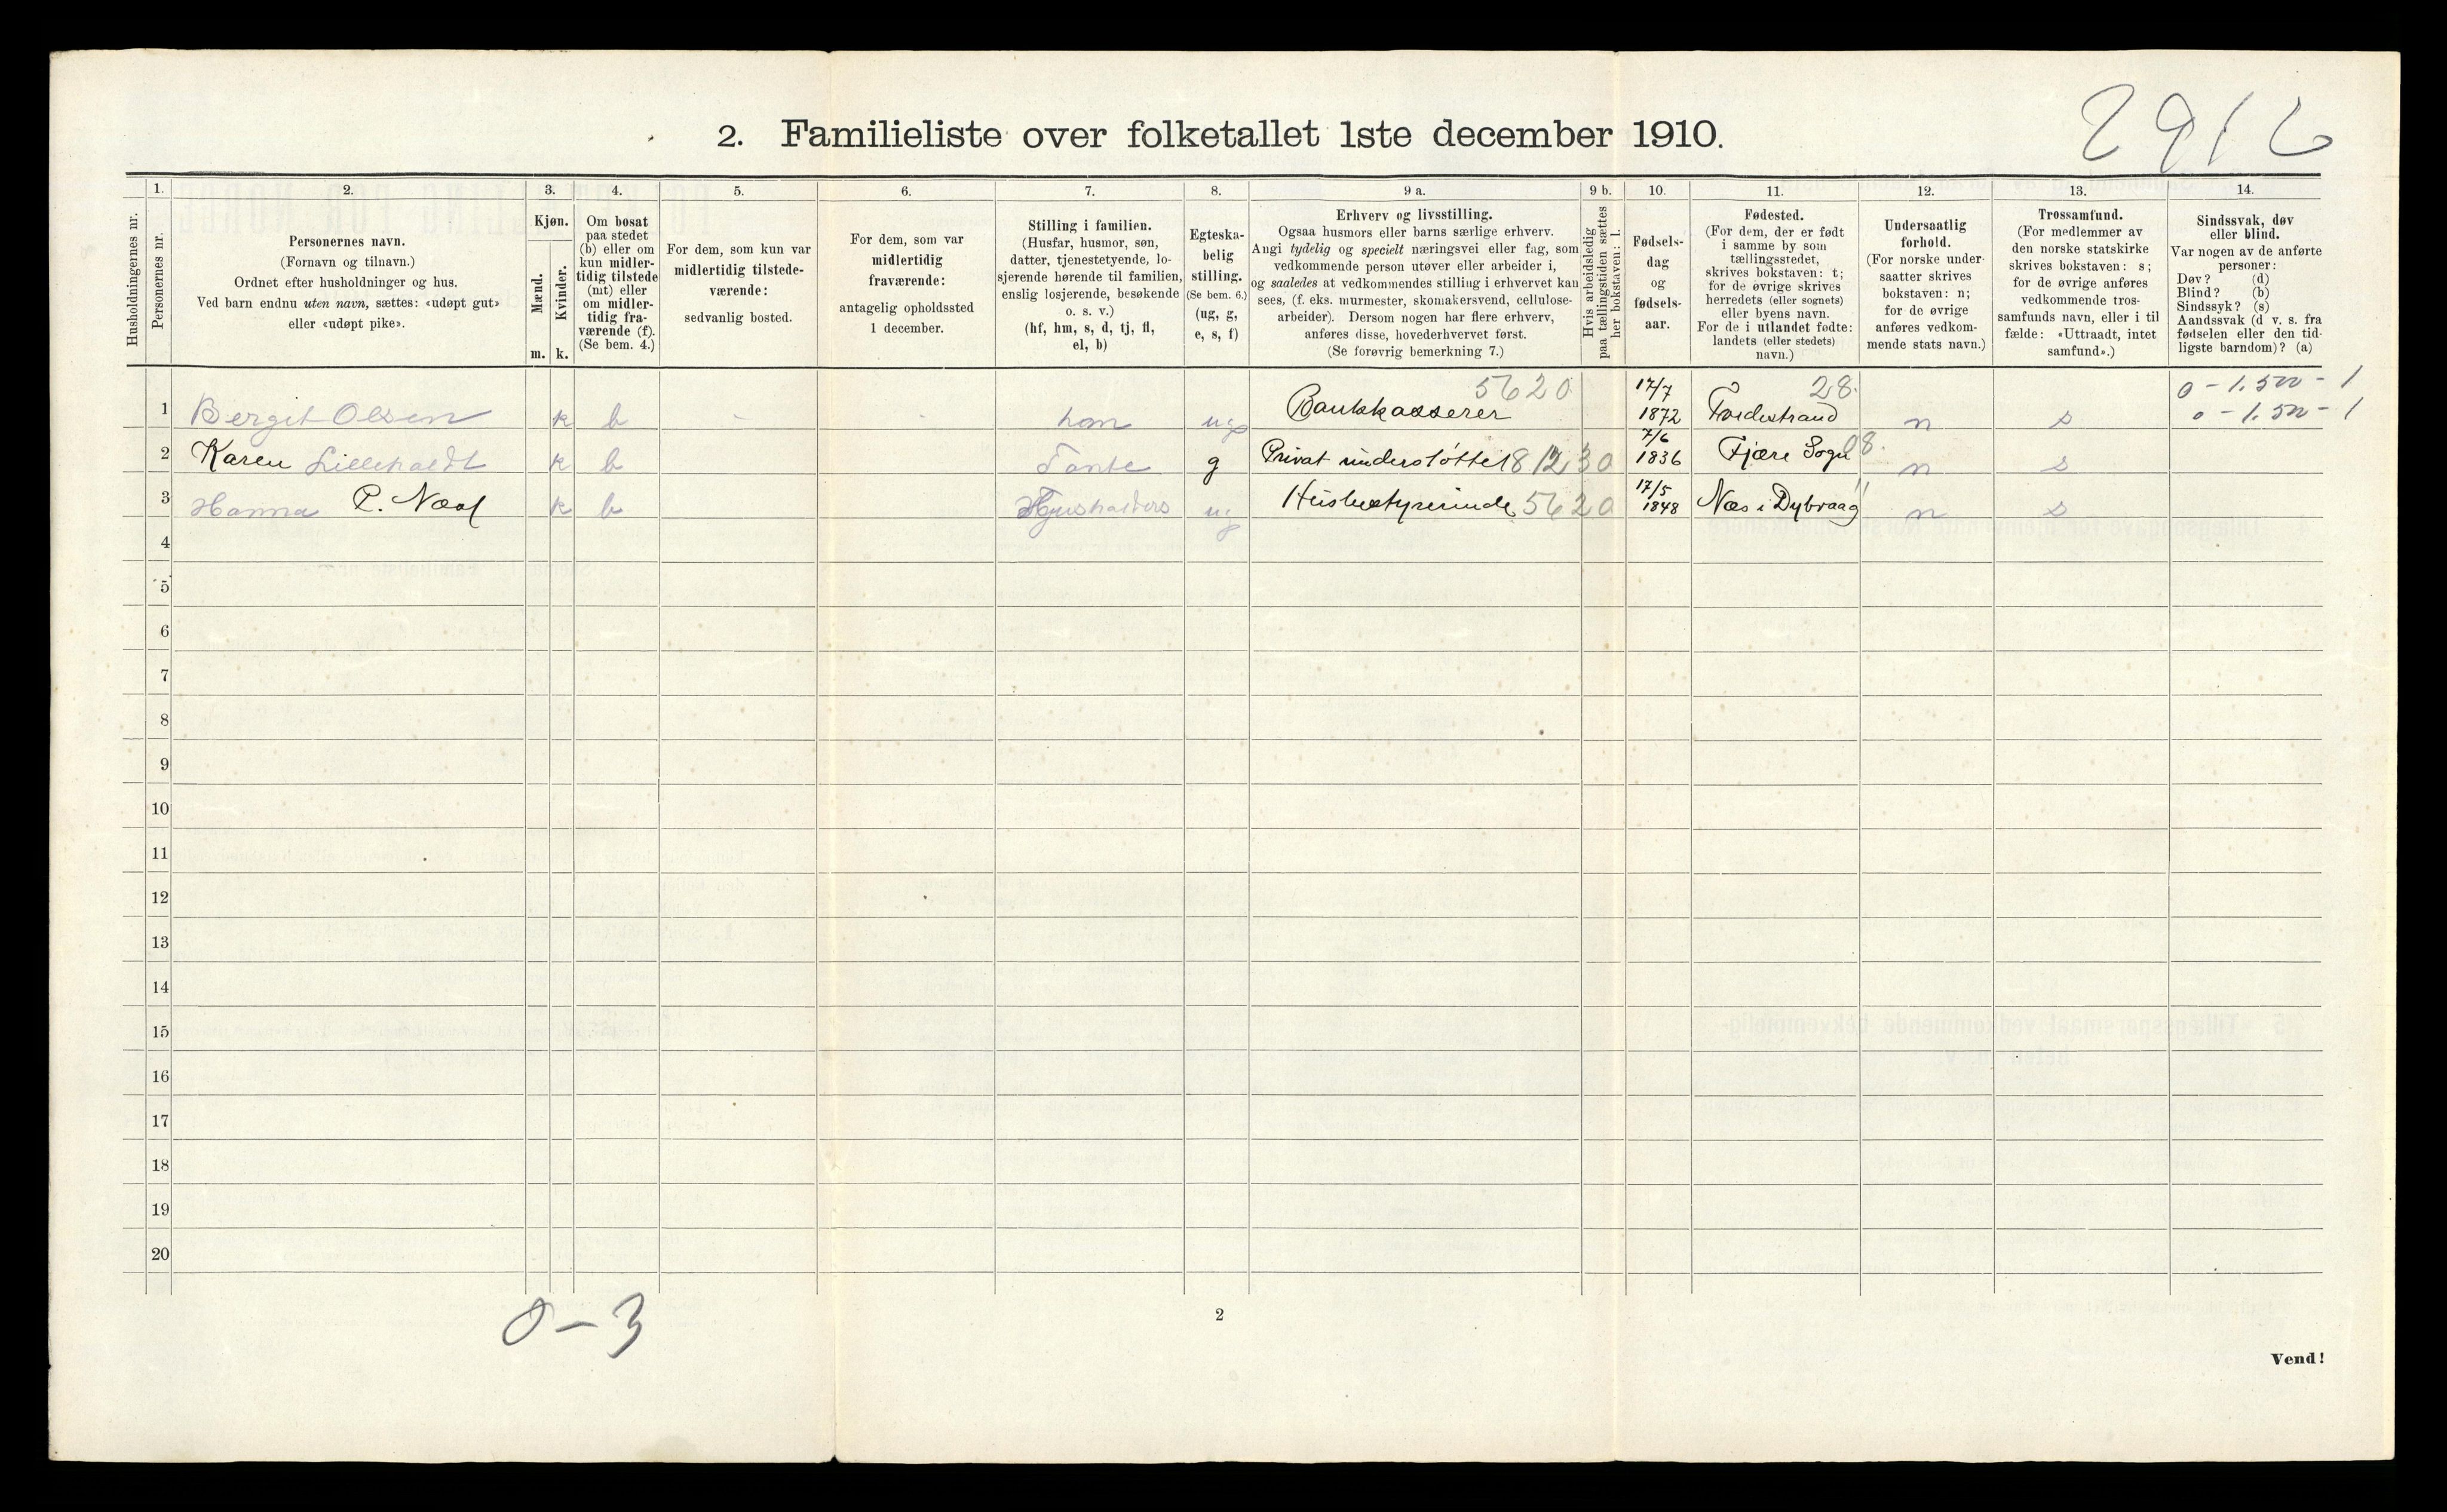 2916
2. Familieliste over folketallet 1ste december 1910.
1. 2. 3. 4. 5. 6. 7. 8. 9 a. 9 b. 10. 11. 12. 13. 14.
Husholdningernes nr.
Personernes nr.
Personernes navn.
(Fornavn og tilnavn.)
Ordnet efter husholdninger og hus.
Ved barn endnu uten navn, sættes: «udøpt gut»
eller «udøpt pike».
Kjøn.
Mænd.
Kvinder.
m. k.
Om bosat
paa stedet
(b) eller om
kun midler-
tidig tilstede
(mt) eller
om midler-
tidig fra-
værende (f).
(Se bem. 4.)
For dem, som kun var
midlertidig tilstede-
værende:
sedvanlig bosted.
For dem, som var
midlertidig
fraværende:
antagelig opholdssted
1 december.
Stilling i familien.
(Husfar, husmor, søn,
datter, tjenestetyende, lo-
sjerende hørende til familien,
enslig losjerende, besøkende
o. s. v.)
(hf, hm, s, d, tj, fl,
el, b)
Egteska-
belig
stilling.
(Se bem. 6.)
(ug, g,
e, s, f)
Erhverv og livsstilling.
Ogsaa husmors eller barns særlige erhverv.
Angi tydelig og specielt næringsvei eller fag, som
vedkommende person utøver eller arbeider i,
og saaledes at vedkommendes stilling i erhvervet kan
sees, (f. eks. murmester, skomakersvend, cellulose-
arbeider). Dersom nogen har flere erhverv,
anføres disse, hovederhvervet først.
(Se forøvrig bemerkning 7.)
Hvis arbeidsledig
paa tællingstiden sættes
her bokstaven: l.
Fødsels-
dag
og
fødsels-
aar.
Fødested.
(For dem, der er født
i samme by som
tællingsstedet,
skrives bokstaven: t;
for de øvrige skrives
herredets (eller sognets)
eller byens navn.
For de i utlandet fødte:
landets (eller stedets)
navn.)
Undersaatlig
forhold.
(For norske under-
saatter skrives
bokstaven: n;
for de øvrige
anføres vedkom-
mende stats navn.)
Trossamfund.
(For medlemmer av
den norske statskirke
skrives bokstaven: s;
for de øvrige anføres
vedkommende tros-
samfunds navn, eller i til
fælde: «Uttraadt, intet
samfund».)
Sindssvak, døv
eller blind.
Var nogen av de anførte
personer:
Døv? (d)
Blind? (b)
Sindssyk? (s)
Aandssvak (d v. s. fra
fødselen eller den tid-
ligste barndom)? (a)
5620 17/7 28. 0 - 1.500 - 1
1 Bergit Olsen k b - - hm ug Bankkasserer 1872 Tvedestrand n s 0 - 1.500 - 1
2 Karen Lilleholdt k b Tante g Privat understøttet 81230 7/6 1836 Fjære Sogn 28. n s
3 Hanna P. Næs k b Husholders ug Husbestyrerinde 5620 17/5 1848 Næs i Dybvaag n s
4
5
6
7
8
9
10
11
12
13
14
15
16
17
18
19
20
0 - 3
2
Vend!